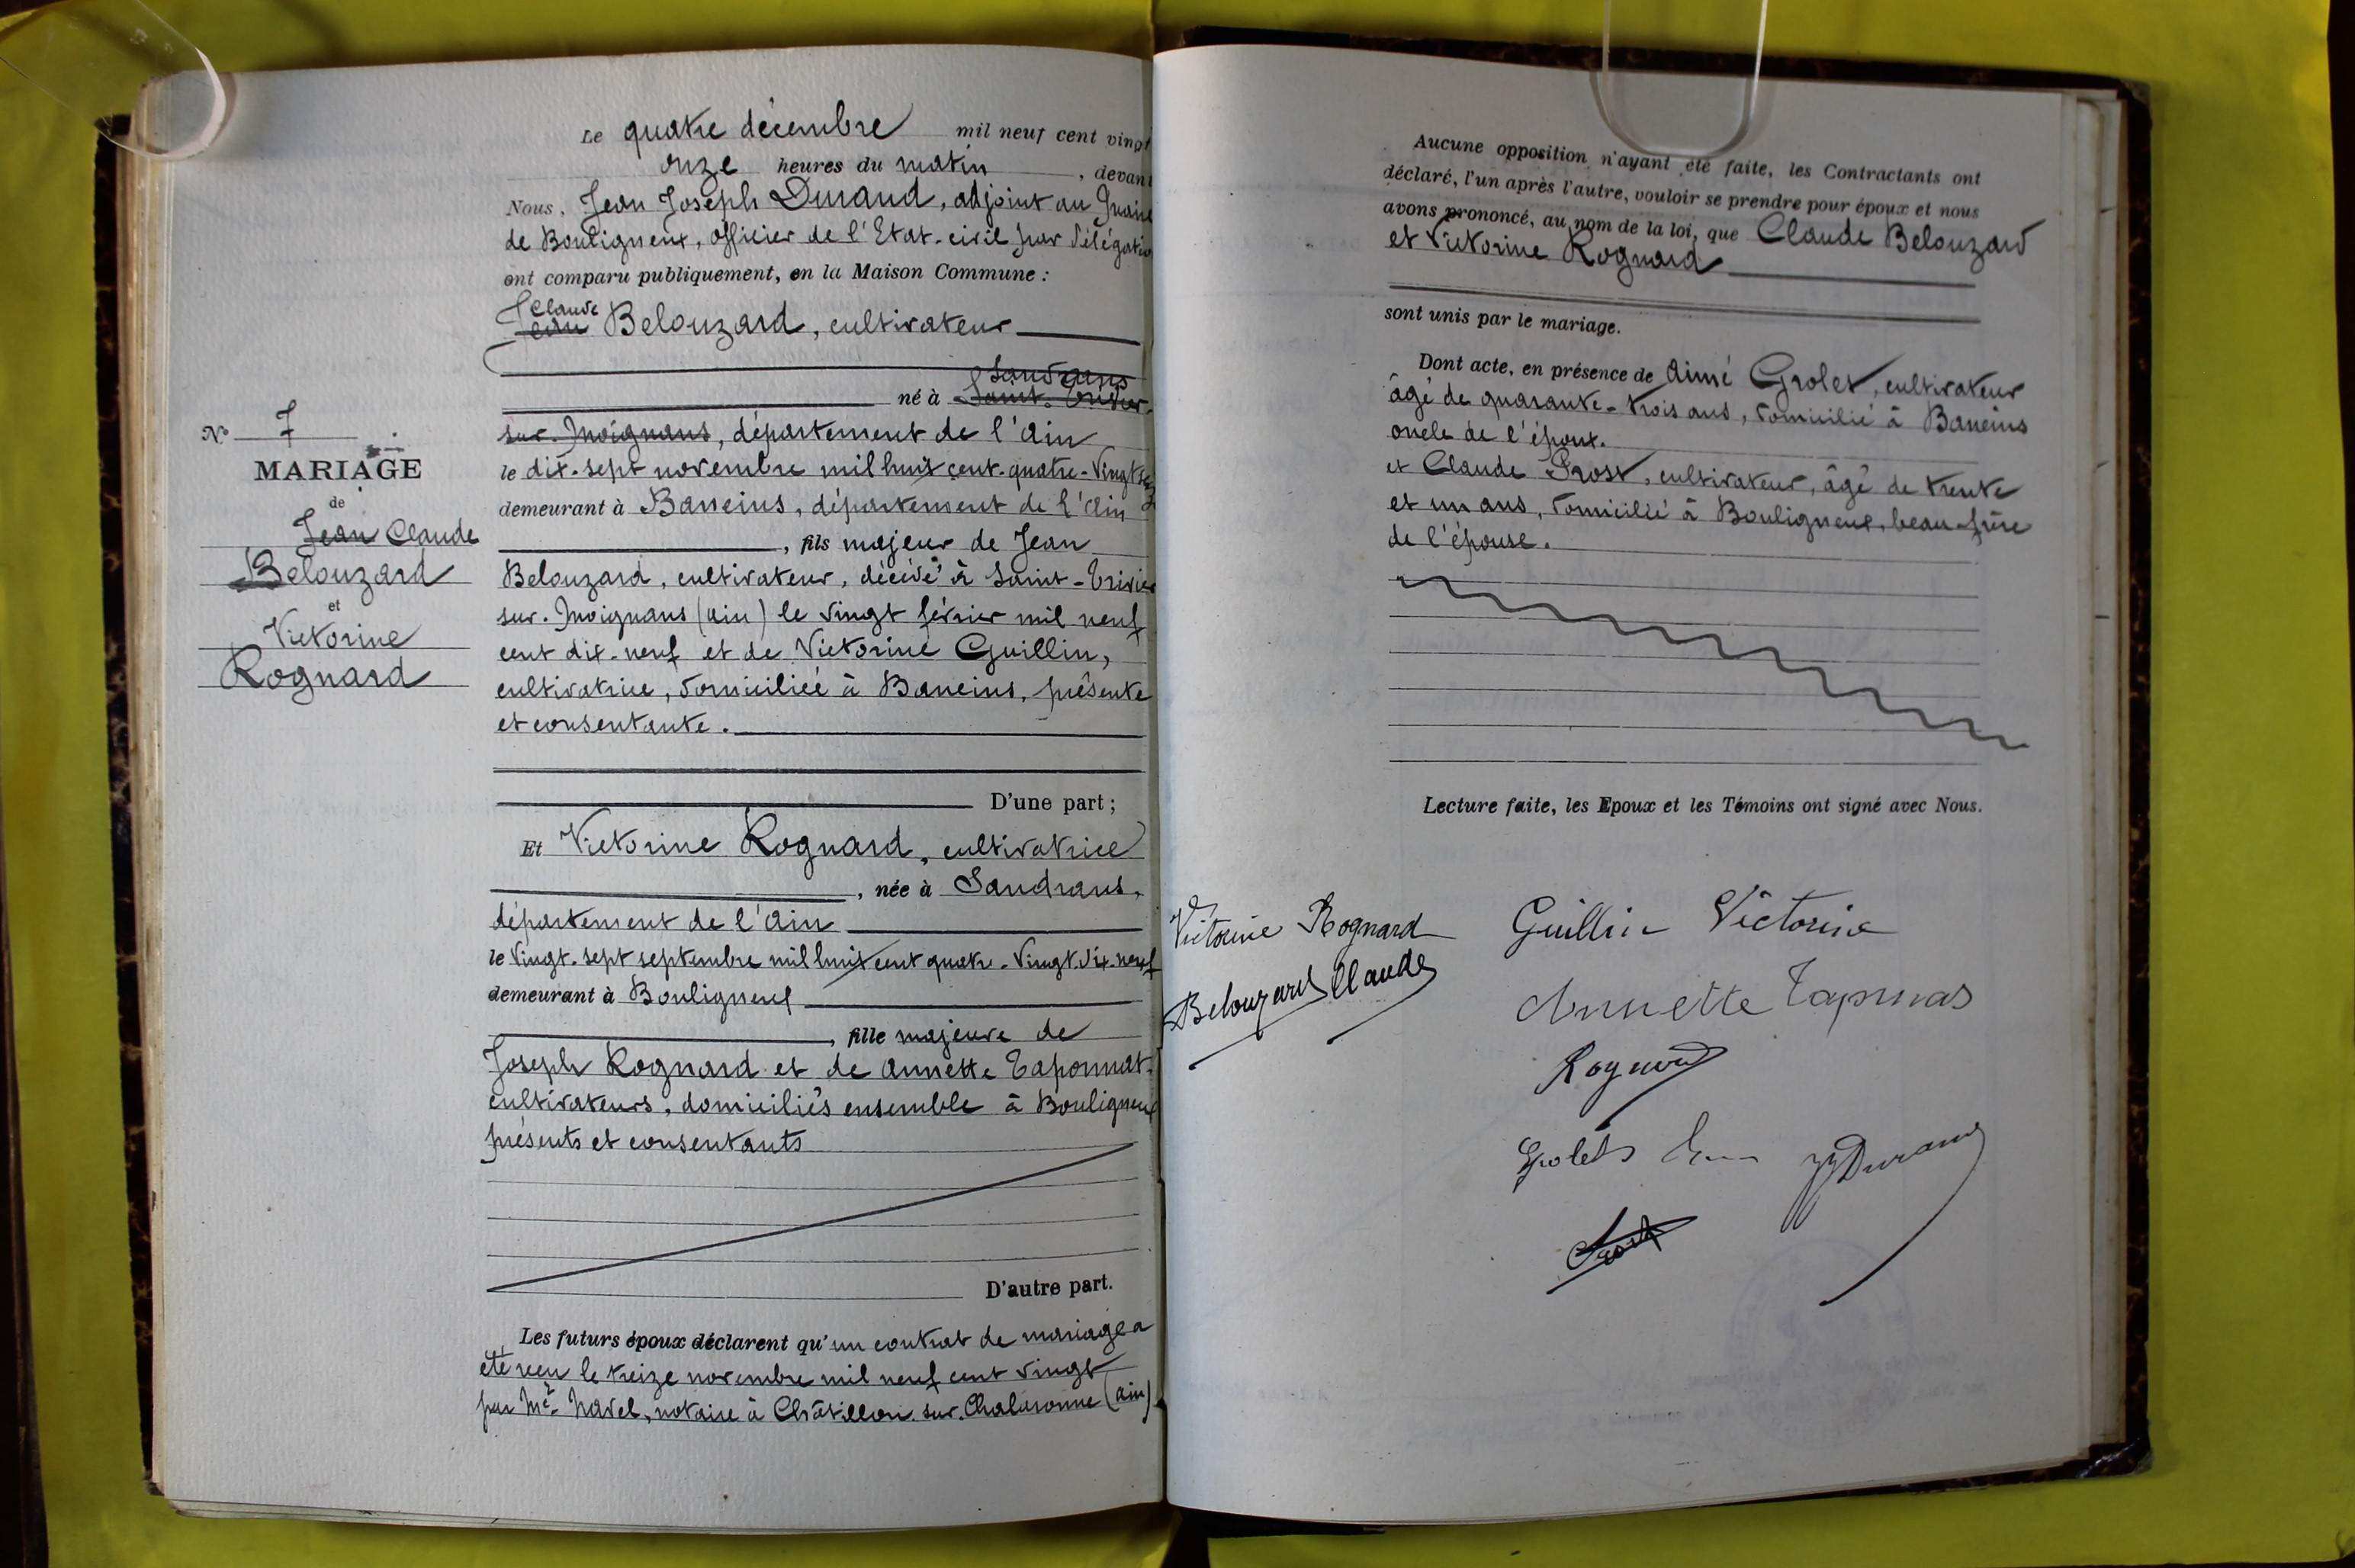 N° 7
MARIAGE
de
Jean Claude
Belouzard
et
Victorine
Rognard
Le quatre décembre mil neuf cent vingt
onze heures du matin, devant
Nous, Jean Joseph Durand, adjoint au Maire
de Bouligneux, officier de l'Etat-civil par délégation
ont comparu publiquement, en la Maison Commune :
Claude
Jean Belouzard, cultivateur
Sandrans
né à Saint-Trivier-
sur-Moignans, département de l'Ain
le dix-sept novembre mil huit cent quatre-vingt
demeurant à Baneins, département de l'Ain
, fils majeur de Jean
Belouzard, cultivateur, décédé à Saint-Trivier
sur-Moignans (Ain) le vingt février mil neuf
cent dix-neuf et de Victorine Guillin,
cultivatrice, domiciliée à Baneins, présente
et consentante.
D'une part ;
Et Victorine Rognard, cultivatrice
, née à Sandrans,
département de l'Ain
le vingt-sept septembre mil huit cent quatre-vingt-dix-neuf
demeurant à Bouligneux
, fille majeure de
Joseph Rognard et de Annette Taponnat,
cultivateurs, domiciliés ensemble à Bouligneux
présents et consentants
D'autre part.
Les futurs époux déclarent qu'un contrat de mariage a
été reçu le treize novembre mil neuf cent vingt
par Me Navel, notaire à Châtillon-sur-Chalaronne (Ain)
Aucune opposition n'ayant été faite, les Contractants ont
déclaré, l'un après l'autre, vouloir se prendre pour époux et nous
avons prononcé, au nom de la loi, que Claude Belouzard
et Victorine Rognard
sont unis par le mariage.
Dont acte, en présence de Aimé Grolet, cultivateur
âgé de quarante-trois ans, domicilié à Baneins
oncle de l'époux.
et Claude Prost, cultivateur, âgé de trente
et un ans, domicilié à Bouligneux, beau-frère
de l'épouse.
Lecture faite, les Epoux et les Témoins ont signé avec Nous.
Victorine Rognard Guillin Victorine
Belouzard Claude Annette Taponas
Rognard
JJDurand
Prost